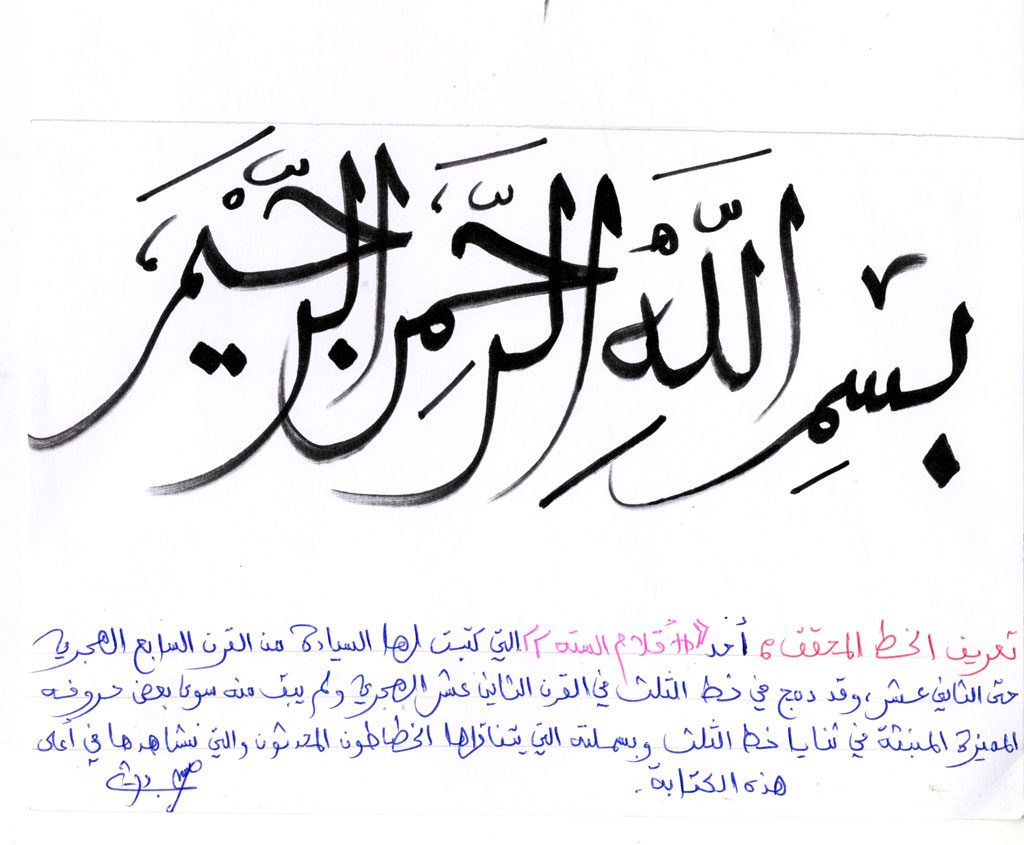 بِسْمِ اللَّهِ الرَّحْمَٰنِ الرَّحِيمِ
تعريف الخط المحقق: أحد «الأقلام الستة» التي كتبت لها السيادة من القرن السابع الهجري
حتى الثاني عشر، وقد دمج في خط الثلث في القرن الثاني عشر الهجري ولم يبق منه سوى بعض حروفه
المميزة المنبثة في ثنايا خط الثلث وبسملته التي يتناقلها الخطاطون المحدثون والتي نشاهدها في أعلى
هذه الكتابة.